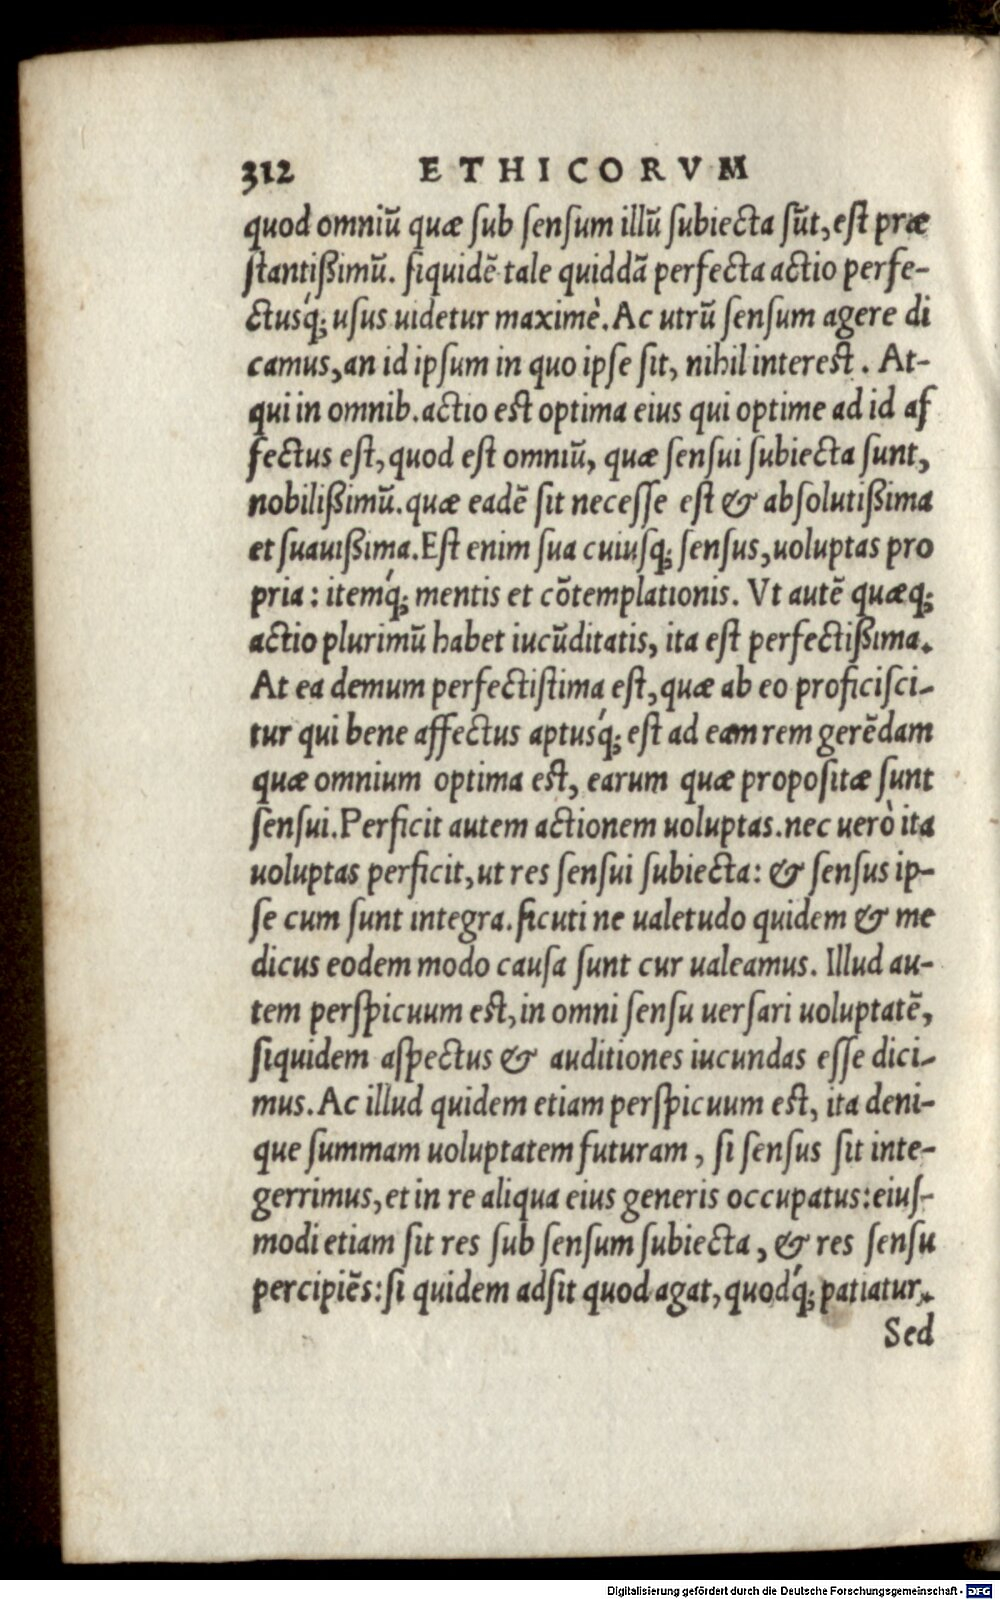 312 ETHICORVM
quod omniũ quæ ſub ſenſum illũ ſubiecta sũt, eſt præ
ſtantißimũ. ſiquidẽ tale quiddã perfecta actio perfe-
ctusq́; uſus uidetur maximè. Ac utrũ ſenſum agere di
camus, an id ipſum in quo ipſe ſit, nihil intereſt. At-
qui in omnib. actio eſt optima eius qui optime ad id af
fectus eſt, quod eſt omniũ, quæ ſenſui ſubiecta ſunt,
nobilißimũ. quæ eadẽ ſit neceſſe eſt & abſolutißima
et ſuauißima. Eſt enim ſua cuiuſq; ſenſus, uoluptas pro
pria: itemq́; mentis et cõtemplationis. Vt autẽ quæq;
actio plurimũ habet iucũditatis, ita eſt perfectißima.
At ea demum perfectiſtima eſt, quæ ab eo proficiſci-
tur qui bene affectus aptusq́; eſt ad eam rem gerẽdam
quæ omnium optima eſt, earum quæ propoſitæ ſunt
ſenſui. Perficit autem actionem uoluptas. nec uerò ita
uoluptas perficit, ut res ſenſui ſubiecta: & ſenſus ip-
ſe cum ſunt integra. ſicuti ne ualetudo quidem & me
dicus eodem modo cauſa ſunt cur ualeamus. Illud au-
tem perſpicuum eſt, in omni ſenſu uerſari uoluptatẽ,
ſiquidem aſpectus & auditiones iucundas eſſe dici-
mus. Ac illud quidem etiam perſpicuum eſt, ita deni-
que ſummam uoluptatem futuram, ſi ſenſus ſit inte-
gerrimus, et in re aliqua eius generis occupatus: eiuſ-
modi etiam ſit res ſub ſenſum ſubiecta, & res ſenſu
percipiẽs: ſi quidem adſit quod agat, quodq́; patiatur.
Sed
Digitalisierung gefördert durch die Deutsche Forschungsgemeinschaft - DFG